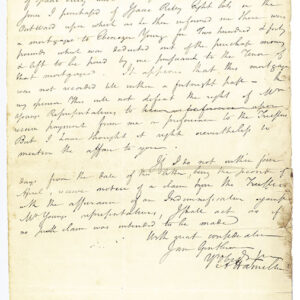 June I purchased of Isaac Riley Eight lots in the
Outward upon which as he then informed me there were
a mortgage to Ebenezer Young for Two hundred & forty
pounds which was deducted out of the purchase money
& left to be paid by me pursuant to the Tenor of
that mortgage. It appears that this mortgage
was not recorded till within a fortnight past —
my opinion this will not defeat the right of Mr
Youngs Representatives to
payment from me in preference to the Trustees
But I have thought it right nevertheless to
mention the affair to you.
If I do not within five
days from the date of this letter, being the second of
April, receive notice of a claim from the Trustees
with the assurance of an Indemnification against
Mr Youngs representatives, I shall act as if
no such claim was intended to be made
With great consideration
I am Gentlemen
Yr Obed
A Hamilton